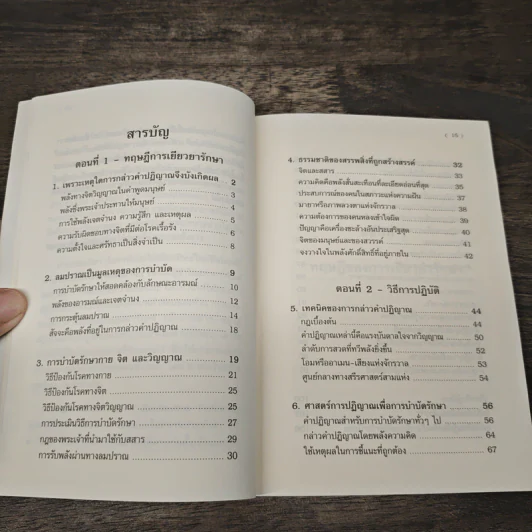 สารบัญ
ตอนที่ 1 - ทฤษฎีการเยียวยารักษา
1. เพราะเหตุใดการกล่าวคำปฏิญาณจึงบังเกิดผล 2
พลังทางจิตวิญญาณในคำพูดมนุษย์ 3
พลังซึ่งพระเจ้าประทานให้มนุษย์ 4
การใช้พลังเจตจำนง ความรู้สึก และเหตุผล 5
ความรับผิดชอบทางจิตที่มีต่อโรคเรื้อรัง 6
ความตั้งใจและศรัทธาเป็นสิ่งจำเป็น 8
2. ลมปราณเป็นมูลเหตุของการบำบัด 9
การบำบัดรักษาให้สอดคล้องกับลักษณะอารมณ์ 10
พลังของอารมณ์และเจตจำนง 12
การกระตุ้นลมปราณ 14
สัจจะคือพลังที่อยู่ในการกล่าวคำปฏิญาณ 18
3. การบำบัดรักษากาย จิต และวิญญาณ 19
วิธีป้องกันโรคทางกาย 21
วิธีป้องกันโรคทางจิต 25
วิธีป้องกันโรคทางจิตวิญญาณ 25
การประเมินวิธีการบำบัดรักษา 27
กฎของพระเจ้าที่นำมาใช้กับสสาร 29
การรับพลังผ่านทางลมปราณ 30
4. ธรรมชาติของสรรพสิ่งที่ถูกสร้างสรรค์ 32
จิตและสสาร 33
ความคิดคือพลังสั่นสะเทือนที่ละเอียดอ่อนที่สุด 35
ประสบการณ์ของคนในสภาวะแห่งความฝัน 37
มายาหรือภาพลวงตาแห่งจักรวาล 38
ความต้องการของคนหลงเข้าใจผิด 40
ปัญญาคือเครื่องชะล้างอันประเสริฐสุด 40
จิตของมนุษย์และของสวรรค์ 41
จงวางใจในพลังศักดิ์สิทธิ์ที่อยู่ภายใน 42
ตอนที่ 2 - วิธีการปฏิบัติ
5. เทคนิคของการกล่าวคำปฏิญาณ 44
กฎเบื้องต้น 44
คำปฏิญาณเหล่านี้คือแรงบันดาลใจจากวิญญาณ 50
ลำดับการสวดที่ทวีพลังยิ่งขึ้น 52
โอมหรืออาเมน-เสียงแห่งจักรวาล 53
ศูนย์กลางทางสรีรศาสตร์สามแห่ง 54
6. ศาสตร์การปฏิญาณเพื่อการบำบัดรักษา 56
คำปฏิญาณสำหรับการบำบัดรักษาทั่วๆ ไป 56
กล่าวคำปฏิญาณโดยพลังความคิด 64
ใช้เหตุผลในการชี้แนะที่ถูกต้อง 67